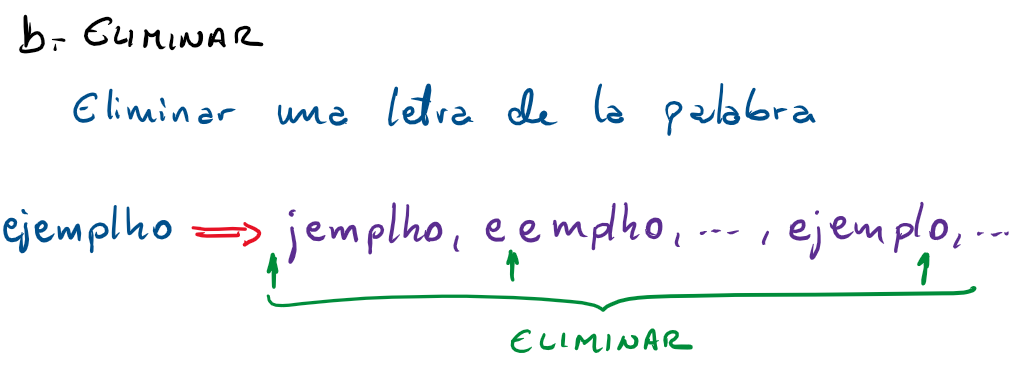 b.- ELIMINAR
Eliminar una letra de la palabra
ejemplho ⇒ jemplho, eemplho, ... , ejemplo, ...
ELIMINAR